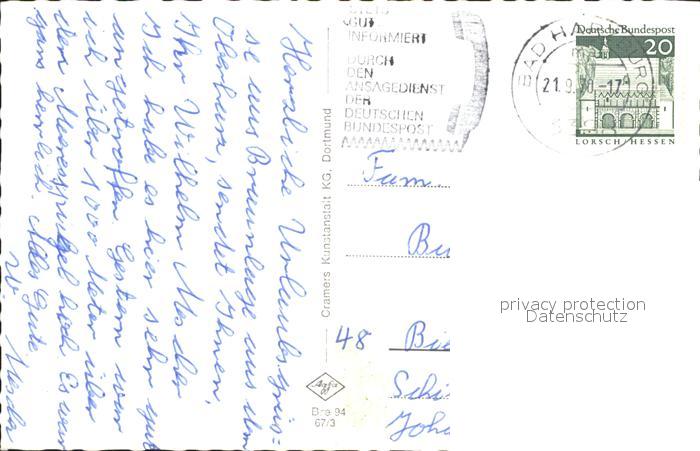 Herzliche Urlaubsgrüs-
se aus Braunlage aus dem
Oberharz, sendet Ihnen,
Ihr Wilhelm
Ich habe es hier sehr gut
angetroffen. Gestern war
ich über 1000 Meter über
dem Meeresspiegel hoch. Es war
ganz herrlich. Alles Gute
W.
Cramers Kunstanstalt KG, Dortmund
STETS
GUT
INFORMIERT
DURCH
DEN
ANSAGEDIENST
DER
DEUTSCHEN
BUNDESPOST
BAD HARZBURG
21.9.70-17
Deutsche Bundespost
20
LORSCH/HESSEN
Fam.
Bu
48 Bie
Schi
Joh
Agfa
Bre 94
67/3
privacy protection
Datenschutz